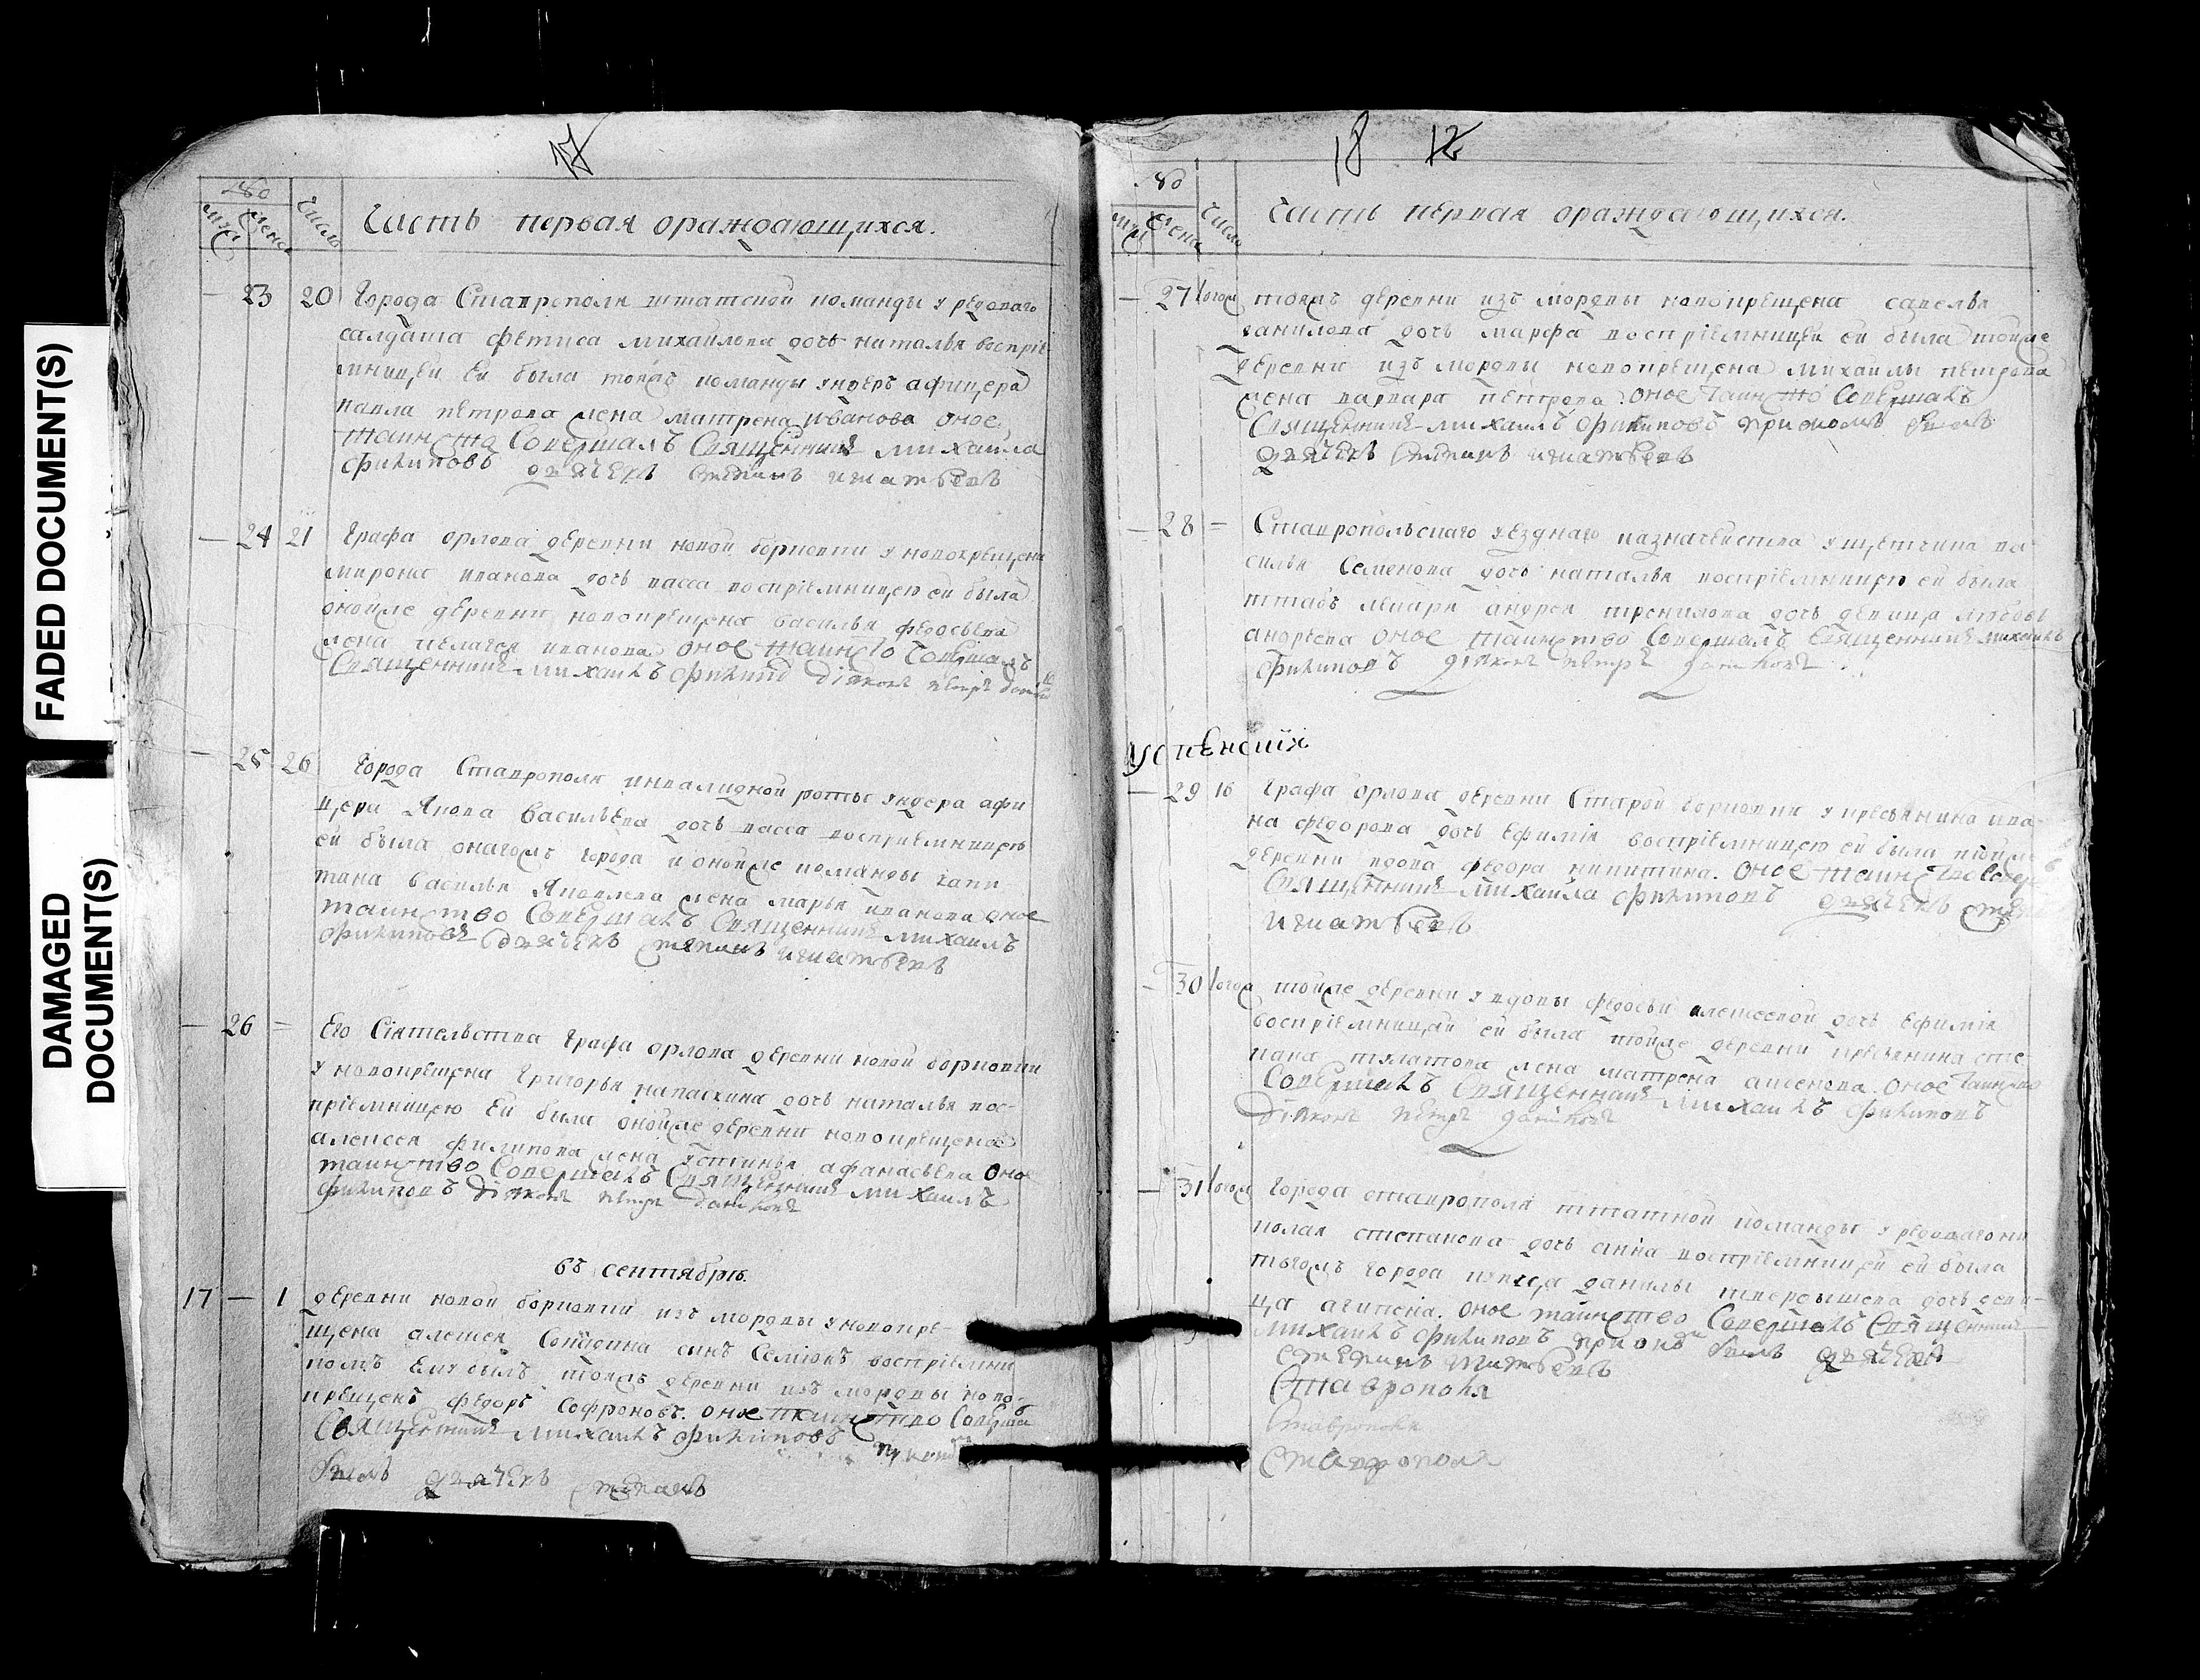 FADED DOCUMENT(S)
DAMAGED
DOCUMENT(S)
17
Число
Часть первая ораждающихся.
23 20 Города Ставрополя штатской команды у редоваго
салдата Фетиса Михаилова дочь Наталья воспріе-
мницей ей была тоежъ команды ундеръ афицера
Павла Петрова жена Матрена Иванова оное
таинство Совершалъ Священникъ Михаила
Филиповъ дьячекъ Степанъ Игнатьевъ
24 21 Графа Орлова деревни новой Борковки у новокрещена
Мирона Иванова дочь Васса воспріемницею ей была
оной же деревни новокрещена Василья Федосеева
жена Пелагея Иванова оное таинство Совершалъ
Священникъ Михаилъ Филипов Діякон Петръ
25 26 Города Ставрополя инвалидной роты ундера афи
цера Якова Васильева дочь Васса воспріемницею
ей была онагожъ города и оной же команды капи
тана Василья Яковлева жена Марья Иванова оное
таинство Совершалъ Священникъ Михаилъ
Филиповъ дьячекъ Степанъ Игнатьевъ
26 = Его Сіятельства Графа Орлова деревни новой Борковки
у новокрещена Григорья дочь Наталья вос-
пріемницею ей была оной же деревни новокрещена
Алексея Филипова жена Устинья Афанасьева оное
таинство Совершалъ Священникъ Михаилъ
Филиповъ Діякон Петръ
въ сентябрѣ.
17 — 1 деревни новой Борковки изъ мордвы у новокре-
щена Алексея сынъ Семіонъ воспріемни
комъ ему былъ тоежъ деревни изъ мордвы ново-
крещенъ Федоръ Софроновъ. оное таинство Соверша
Священникъ Михаилъ Филиповъ при
дьячекъ Степанъ
18 12
Число
Часть первая ораждающихся.
27 тоежъ деревни изъ мордвы новокрещена Савелья
Данилова дочь Марфа воспріемницей ей была той же
деревни изъ мордвы новокрещена Михаилы Петрова
жена Варвара Петрова оное таинство Совершалъ
Священникъ Михаилъ Филиповъ при ономъ былъ
дьячекъ Степанъ Игнатьевъ
28 = Ставропольскаго уезднаго казначейства у щетчика Ва
силья Семенова дочь Наталья воспріемницею ей была
штабъ Андрея дочь девица Любовь
Андреева оное таинство Совершалъ Священникъ Михаилъ
Филиповъ Діякон Петръ
Успенскія
29 16 Графа Орлова деревни Старой Борковки у кресьянина Ива-
на Федорова дочь Ефимія воспріемницею ей была той же
деревни вдова Федора Никитина. оное таинство Совер
Священникъ Михаила Филиповъ дьячекъ Сте
Игнатьевъ
30 той же деревни у вдовы Федосьи Алексеевой дочь Ефимія
воспріемницей ей была той же деревни кресьянина Сте-
пана жена Матрена Аксенова. оное таинство
Совершалъ Священникъ Михаилъ Филиповъ
Діякон Петръ
31 Города Ставрополя штатной команды у редоваго Ни
колая Степанова дочь Анна воспріемницей ей была
тогожъ города купца Данилы Твердышева дочь деви-
ца Агипена. оное таинство Совершалъ Священникъ
Михаилъ Филиповъ при онъ былъ дьячекъ
Степанъ Игнатьевъ
Ставрополя
Ставрополя
Ставрополя